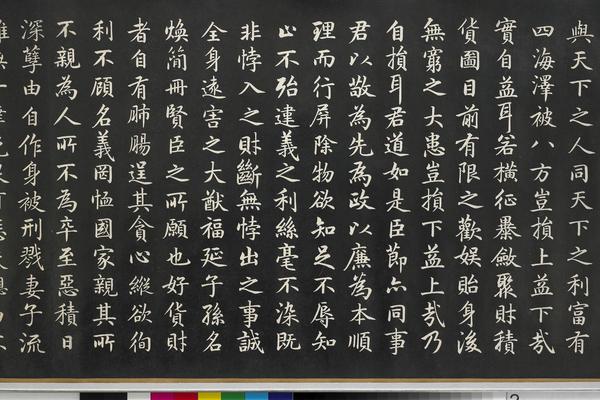 與天下之人同天下之利富有
四海澤被八方豈損上益下哉
實自益耳若橫征暴斂聚財積
貨圖目前有限之歡娛貽身後
無窮之大患豈損下益上哉乃
自損耳君道如是臣節亦同事
君以敬為先為政以廉為本順
理而行屏除物欲知足不辱知
止不殆建義之利絲毫不染既
非悖入之財斷無悖出之事誠
全身遠害之大猷福延子孫名
煥簡冊賢臣之所願也好貨財
者自有肺腸逞其貪心縱欲徇
利不顧名義罔恤國家親其所
不親為人所不為卒至惡積日
深孽由自作身被刑戮妻子流